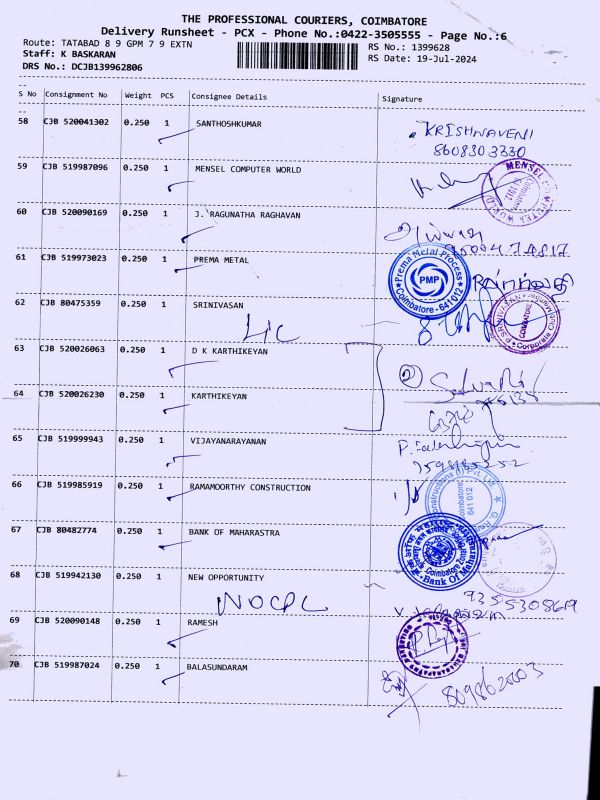 THE PROFESSIONAL COURIERS, COIMBATORE
Delivery Runsheet - PCX - Phone No.:0422-3505555 - Page No.:6
Route: TATABAD 8 9 GPM 7 9 EXTN
RS No.: 1399628
Staff: K BASKARAN
RS Date: 19-Jul-2024
DRS No.: DCJB139962806
S No Consignment No Weight PCS Consignee Details Signature
58 CJB 520041302 0.250 1 SANTHOSHKUMAR
KRISHNAVENI
8608303330
59 CJB 519987096 0.250 1 MENSEL COMPUTER WORLD
60 CJB 520090169 0.250 1 J. RAGUNATHA RAGHAVAN
61 CJB 519973023 0.250 1 PREMA METAL
Prema Metal Process
PMP
Coimbatore - 641 012
62 CJB 80475359 0.250 1 SRINIVASAN
LIC
63 CJB 520026063 0.250 1 D K KARTHIKEYAN
64 CJB 520026230 0.250 1 KARTHIKEYAN
65 CJB 519999943 0.250 1 VIJAYANARAYANAN
66 CJB 519985919 0.250 1 RAMAMOORTHY CONSTRUCTION
Coimbatore
641 012
67 CJB 80482774 0.250 1 BANK OF MAHARASTRA
68 CJB 519942130 0.250 1 NEW OPPORTUNITY
NOCPL
9355308619
69 CJB 520090148 0.250 1 RAMESH
70 CJB 519987024 0.250 1 BALASUNDARAM